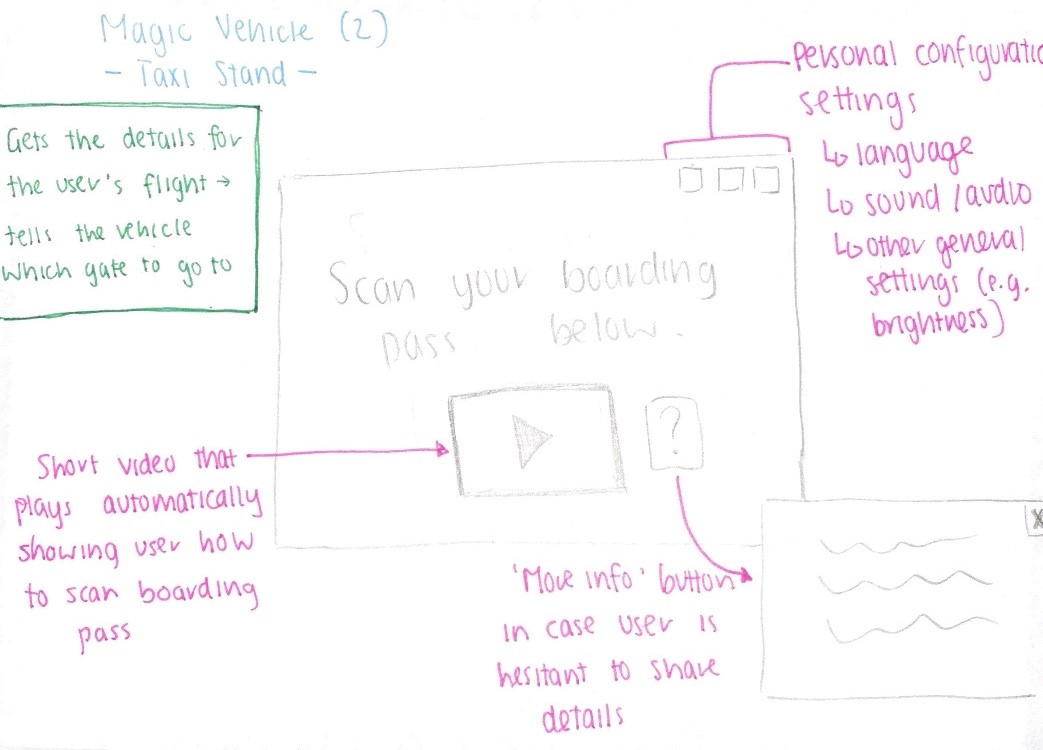 Magic Vehicle (2)
- Taxi Stand -
Gets the details for
the user's flight →
tells the vehicle
which gate to go to
Personal configuratio
settings
↳ language
↳ sound / audio
↳ other general
settings (e.g.
brightness)
Scan your boarding
pass below.
?
Short video that
plays automatically
showing user how
to scan boarding
pass
'More info' button
in case user is
hesitant to share
details
X